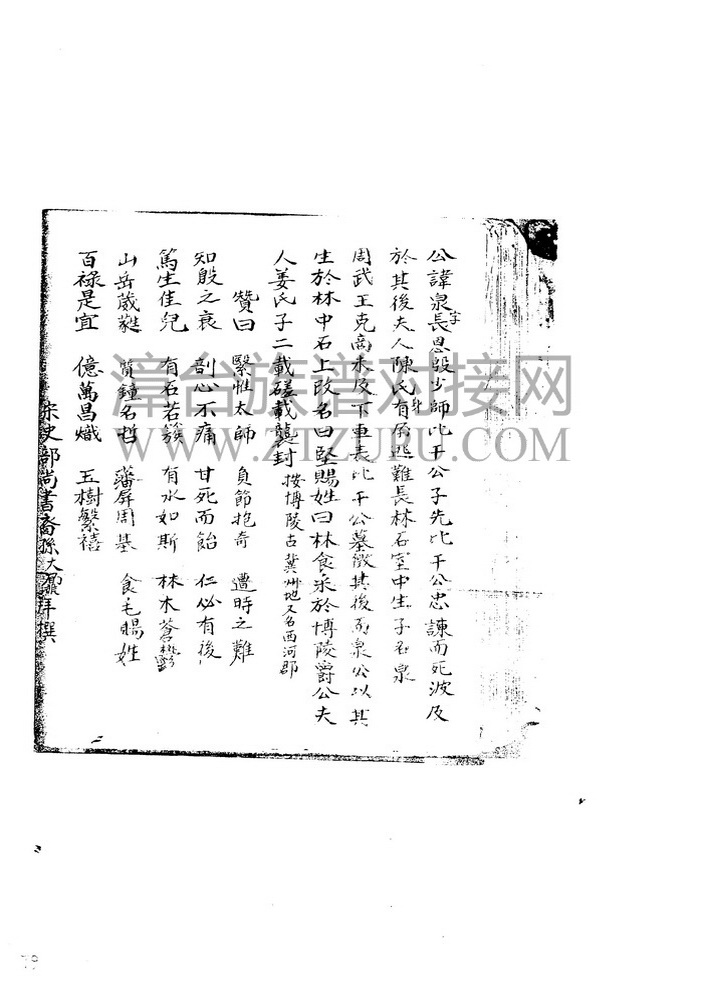 公諱泉字長恩殷少師比干公子先比干公忠諫而死波及
於其後夫人陳氏有身孕逃難長林石室中生子名泉
周武王克商未及下車表比干公墓徵其後而泉公以其
生於林中石上改名曰堅賜姓曰林食采於博陵爵公夫
人姜氏子二載磋載龔封 按博陵古冀州地又名西河郡
贊曰 繄惟太師 負節抱奇 遭時之難
知殷之衰 剖心不痛 甘死而飴 仁必有後
篤生佳兒 有石若簇 有水如斯 林木蒼鬱
山岳葳蕤 質鐘名哲 藩屏周基 食毛賜姓
百祿是宜 億萬昌熾 玉樹繁禧
宋史部尚書裔孫大鼐拜撰
漳台族谱对接网
WWW.ZTZUPU.COM
79